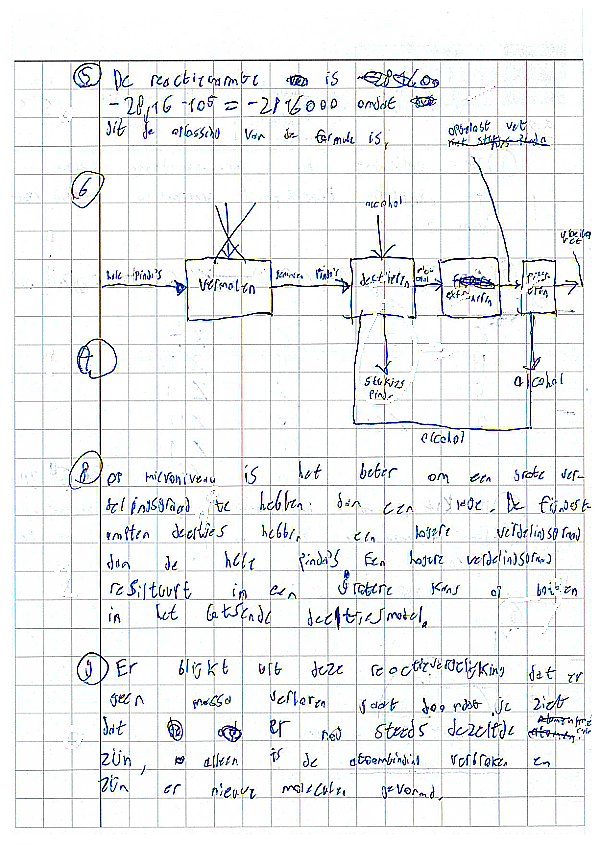 5 De reactiewarmte is
-28,16 · 10⁵ = -2816000 omdat
dit de afossing van de formule is,
opgelost vet
6
alcohol
hele pinda's
vermalen
gemalen pinda's
extraheren
stukjes
pinda
alcohol
alcohol
7
8 op microniveau is het beter om een grote ver-
delingsgraad te hebben. dan een lage. De fijngest-
ampten deeltjes hebben een hogere verdelingsgraad
dan de hele pinda's Een hogere verdelingsgraad
resulteert in een grotere kans op botsen
in het botsende deeltjesmodel.
9 Er blijkt uit deze reactievergelijking dat er
geen massa verloren gaat doordat je ziet
dat er nog steeds dezelfde
zijn, alleen is de atoombinding verbroken en
zijn er nieuwe moleculen gevormd.